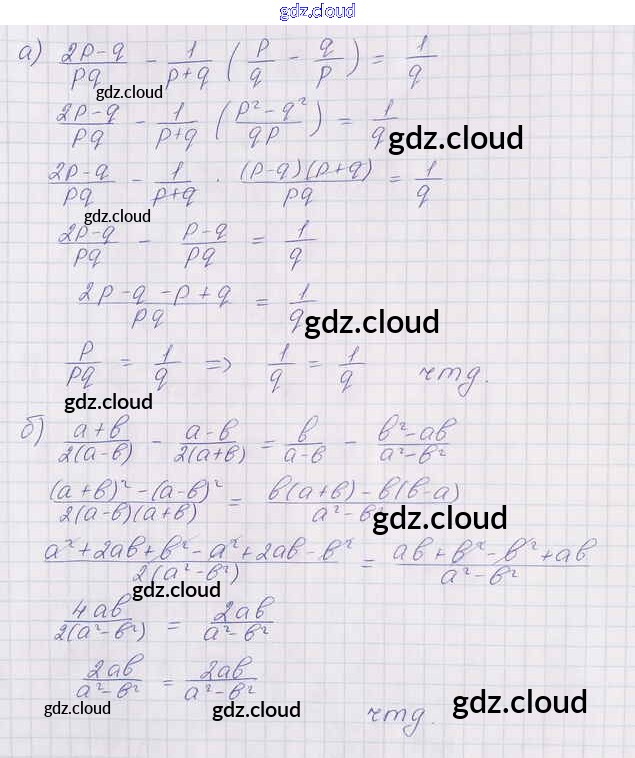 gdz.cloud
а) (2p-q)/(pq) - 1/(p+q) (p/q - q/p) = 1/q
gdz.cloud
(2p-q)/(pq) - 1/(p+q) ((p²-q²)/(qp)) = 1/q
gdz.cloud
(2p-q)/(pq) - 1/(p+q) · ((p-q)(p+q))/(pq) = 1/q
gdz.cloud
(2p-q)/(pq) - (p-q)/(pq) = 1/q
(2p-q-p+q)/(pq) = 1/q
gdz.cloud
p/(pq) = 1/q => 1/q = 1/q чтд.
gdz.cloud
б) (a+b)/(2(a-b)) - (a-b)/(2(a+b)) = b/(a-b) - (b²-ab)/(a²-b²)
((a+b)²-(a-b)²)/(2(a-b)(a+b)) = (b(a+b)-b(b-a))/(a²-b²)
gdz.cloud
(a²+2ab+b²-a²+2ab-b²)/(2(a²-b²)) = (ab+b²-b²+ab)/(a²-b²)
gdz.cloud
4ab/(2(a²-b²)) = 2ab/(a²-b²)
2ab/(a²-b²) = 2ab/(a²-b²)
gdz.cloud
gdz.cloud
чтд.
gdz.cloud